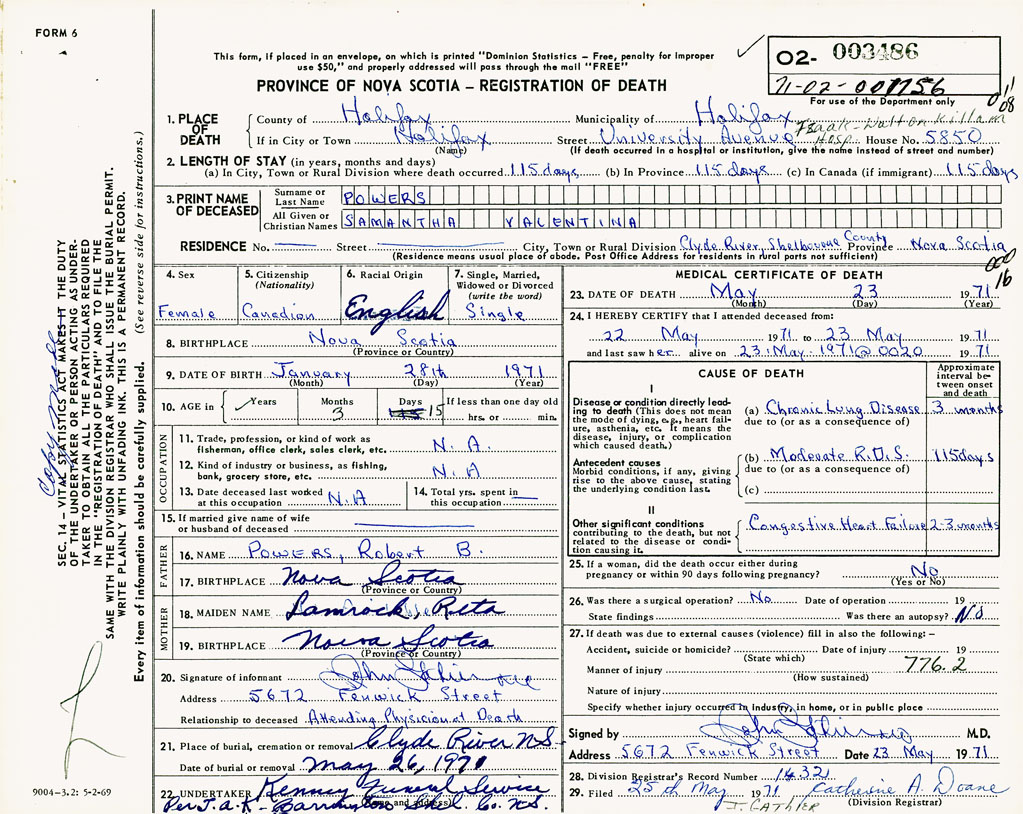 FORM 6
This form, if placed in an envelope, on which is printed "Dominion Statistics - Free, penalty for improper
use $50," and properly addressed will pass through the mail "FREE"
PROVINCE OF NOVA SCOTIA - REGISTRATION OF DEATH
02- 003486
71-02-001756
For use of the Department only
1. PLACE OF DEATH
County of Halifax Municipality of Halifax
Izaak-Walton Killam Hosp.
If in City or Town Halifax Street University Avenue House No. 5850
(Name) (If death occurred in a hospital or institution, give the name instead of street and number)
2. LENGTH OF STAY (in years, months and days)
(a) In City, Town or Rural Division where death occurred 115 days (b) In Province 115 days (c) In Canada (if immigrant) 115 days
3. PRINT NAME OF DECEASED
Surname or Last Name POWERS
All Given or Christian Names SAMANTHA VALENTINA
RESIDENCE No. Street City, Town or Rural Division Clyde River, Shelbourne County Province Nova Scotia
(Residence means usual place of abode. Post Office Address for residents in rural parts not sufficient)
000
16
4. Sex
Female
5. Citizenship
(Nationality)
Canadian
6. Racial Origin
English
7. Single, Married,
Widowed or Divorced
(write the word)
Single
8. BIRTHPLACE Nova Scotia
(Province or Country)
9. DATE OF BIRTH January 28th 1971
(Month) (Day) (Year)
10. AGE in Years Months 3 Days 15 If less than one day old
hrs. or min.
OCCUPATION
11. Trade, profession, or kind of work as
fisherman, office clerk, sales clerk, etc. N.A.
12. Kind of industry or business, as fishing,
bank, grocery store, etc. N.A
13. Date deceased last worked
at this occupation N.A
14. Total yrs. spent in
this occupation
15. If married give name of wife
or husband of deceased
FATHER
16. NAME POWERS, Robert B.
17. BIRTHPLACE Nova Scotia
(Province or Country)
MOTHER
18. MAIDEN NAME Lamrock, Reta
19. BIRTHPLACE Nova Scotia
(Province or Country)
20. Signature of informant John
Address 5672 Fenwick Street
Relationship to deceased Attending Physician at Death
21. Place of burial, cremation or removal Clyde River N.S.
Date of burial or removal May 26, 1971
22. UNDERTAKER Kenney Funeral Service
(Name and address)
Per J.A.K- Barrington Shel. Co. N.S.
MEDICAL CERTIFICATE OF DEATH
23. DATE OF DEATH May 23 1971
(Month) (Day) (Year)
24. I HEREBY CERTIFY that I attended deceased from:
22 May 1971 to 23 May 1971
and last saw her alive on 23 May 1971 @ 0020 1971
CAUSE OF DEATH
Approximate
interval be-
tween onset
and death
I
Disease or condition directly lead-
ing to death (This does not mean
the mode of dying, e.g., heart fail-
ure, asthenia, etc. It means the
disease, injury, or complication
which caused death.)
(a) Chronic Lung Disease 3 months
due to (or as a consequence of)
Antecedent causes
Morbid conditions, if any, giving
rise to the above cause, stating
the underlying condition last.
(b) Moderate R.D.S. 115 days
due to (or as a consequence of)
(c)
II
Other significant conditions
contributing to the death, but not
related to the disease or condi-
tion causing it.
Congestive Heart Failure 2-3 months
25. If a woman, did the death occur either during
pregnancy or within 90 days following pregnancy? No
(Yes or No)
26. Was there a surgical operation? No Date of operation 19
State findings Was there an autopsy? No
27. If death was due to external causes (violence) fill in also the following:-
Accident, suicide or homicide? Date of injury 19
(State which)
Manner of injury 776.2
(How sustained)
Nature of injury
Specify whether injury occurred in industry, in home, or in public place
Signed by John M.D.
Address 5672 Fenwick Street Date 23 May 1971
28. Division Registrar's Record Number 1432
29. Filed 25th May 1971 Catherine A. Doane
(Division Registrar)
SEC. 14 - VITAL STATISTICS ACT MAKES IT THE DUTY
OF THE UNDERTAKER OR PERSON ACTING AS UNDER-
TAKER TO OBTAIN ALL THE PARTICULARS REQUIRED
IN THE "REGISTRATION OF DEATH" AND TO FILE THE
SAME WITH THE DIVISION REGISTRAR WHO SHALL ISSUE THE BURIAL PERMIT.
WRITE PLAINLY WITH UNFADING INK. THIS IS A PERMANENT RECORD.
Every item of information should be carefully supplied. (See reverse side for instructions.)
9004-3.2: 5-2-69